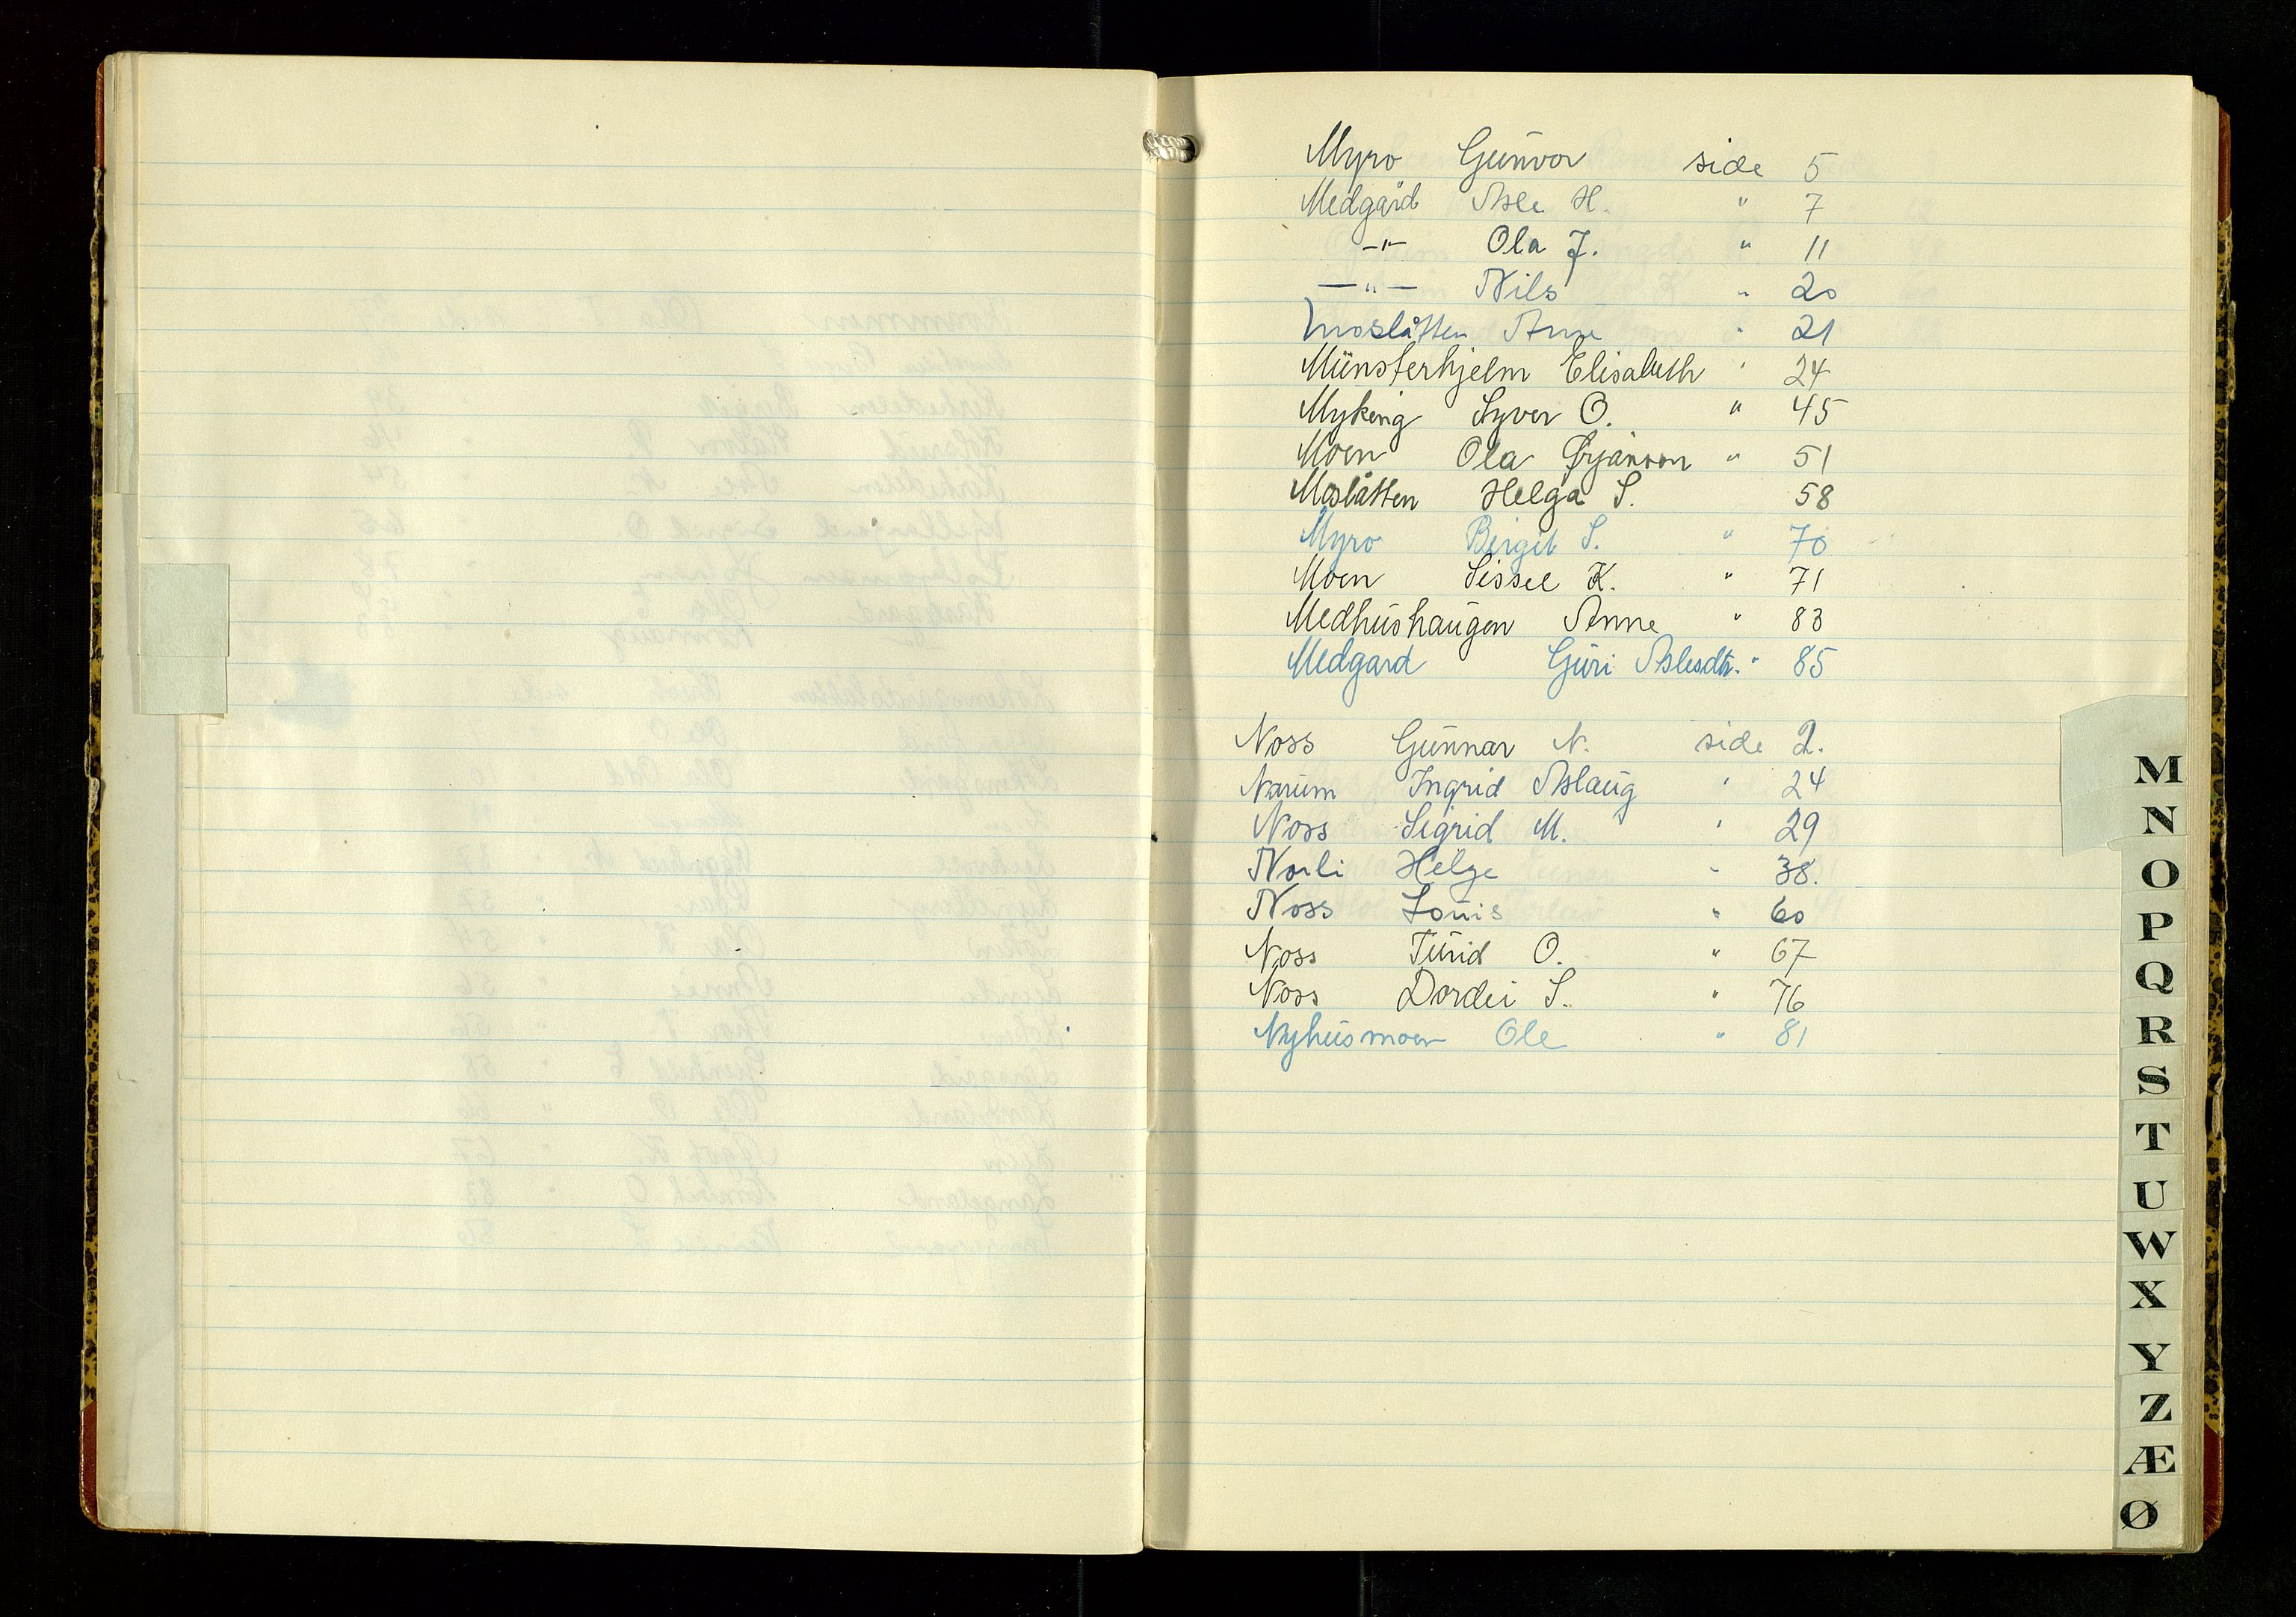 Myro Gunvor side 5
Medgård Asle H. " 7
-"- Ola J. " 11
-"- Nils " 20
Moslåtten Anne " 21
Münsterhjelm Elisabeth " 24
Myking Syver O. " 45
Moen Ola Ørjanson " 51
Moslåtten Helga S. 58
Myro Birgit S. " 70
Moen Sissel K. " 71
Medhushaugen Anne " 83
Medgard Guri Aslesdtr. " 85
Noss Gunnar N. side 2.
Narum Ingrid Aslaug " 24
Noss Sigrid M. " 29
Norli Helge " 38.
Noss Louis " 60
Noss Turid O. " 67
Noss Dordei S. " 76
Nyhusmoen Ole " 81
M
N
O
P
Q
R
S
T
U
W
X
Y
Z
Æ
Ø